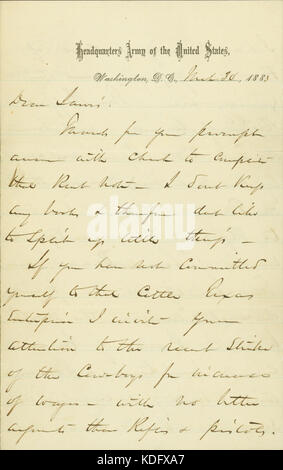 Headquarters Army of the United States,
Washington, D.C., March 26, 1883
Dear Lewis:
Thanks for your prompt
answer with check to complete
that Rent Note — I dont keep
any books & therefore dont like
to split up little things —
If you have not committed
yourself to that Cattle Texas
Enterprise I invite your
attention to the recent Strike
of the Cowboys for increase
of wages — with no better
arguments than Rifles & pistols.
alamy stock photo
KDFXA7